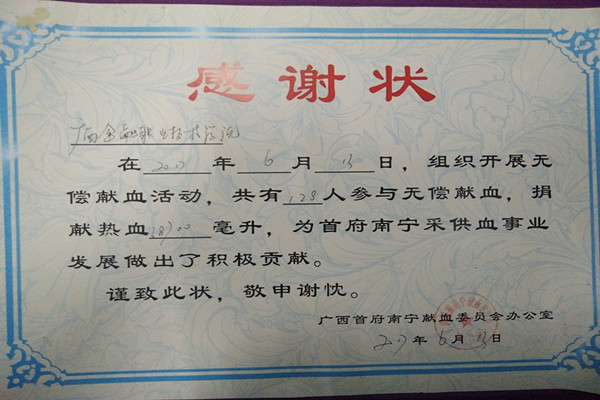 感谢状
广西金融职业技术学院
在2017年6月13日，组织开展无
偿献血活动，共有128人参与无偿献血，捐
献热血28700毫升，为首府南宁采供血事业
发展做出了积极贡献。
谨致此状，敬申谢忱。
广西首府南宁献血委员会办公室
2017年6月13日